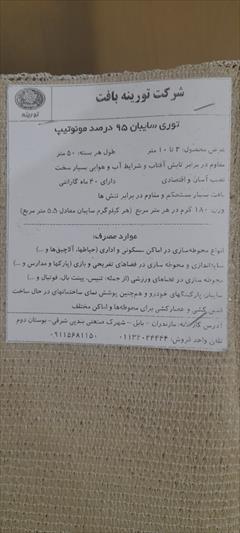 شرکت تورینه بافت
تورینه
توری سایبان ۹۵ درصد مونوتیپ
عرض محصول: ۳ تا ۱۰ متر
طول هر بسته: ۵۰ متر
مقاوم در برابر تابش آفتاب و شرایط آب و هوایی بسیار سخت
نصب آسان و اقتصادی
دارای ۴۰ ماه گارانتی
بافت بسیار مستحکم و مقاوم در برابر تنش ها
وزن: ۱۸۰ گرم در هر متر مربع (هر کیلوگرم سایبان معادل ۵.۵ متر مربع)
موارد مصرف:
انواع محوطه‌سازی در اماکن مسکونی و اداری (حیاطها، آلاچیق‌ها و ...)
سایه‌اندازی و محوطه سازی در فضاهای تفریحی و بازی (پارکها و مدارس و ...)
محوطه سازی در فضاهای ورزشی (از جمله: تنیس، پینت بال، فوتبال و ...)
سایبان پارکینگهای خودرو و همچنین پوشش نمای ساختمانهای در حال ساخت
کشی و حصارکشی برای محوطه‌ها و اماکن مختلف
آدرس کارخانه: مازندران - بابل - شهرک صنعتی بندپی شرقی- بوستان دوم
تلفن واحد فروش: ۰۱۱۳۲۰۲۴۴۴۴ - ۰۹۱۱۵۶۸۱۱۵۰